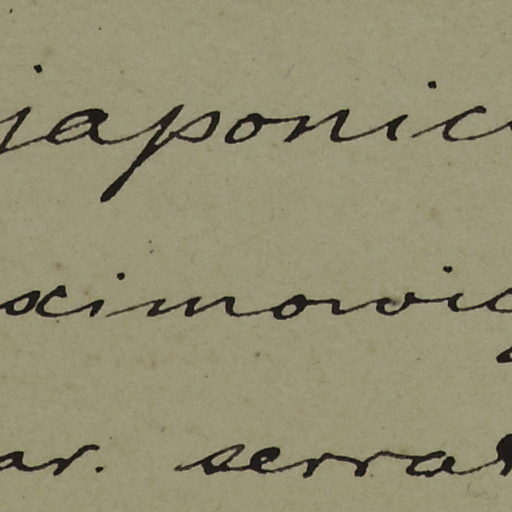 japonic
ximowic
ar. serrat